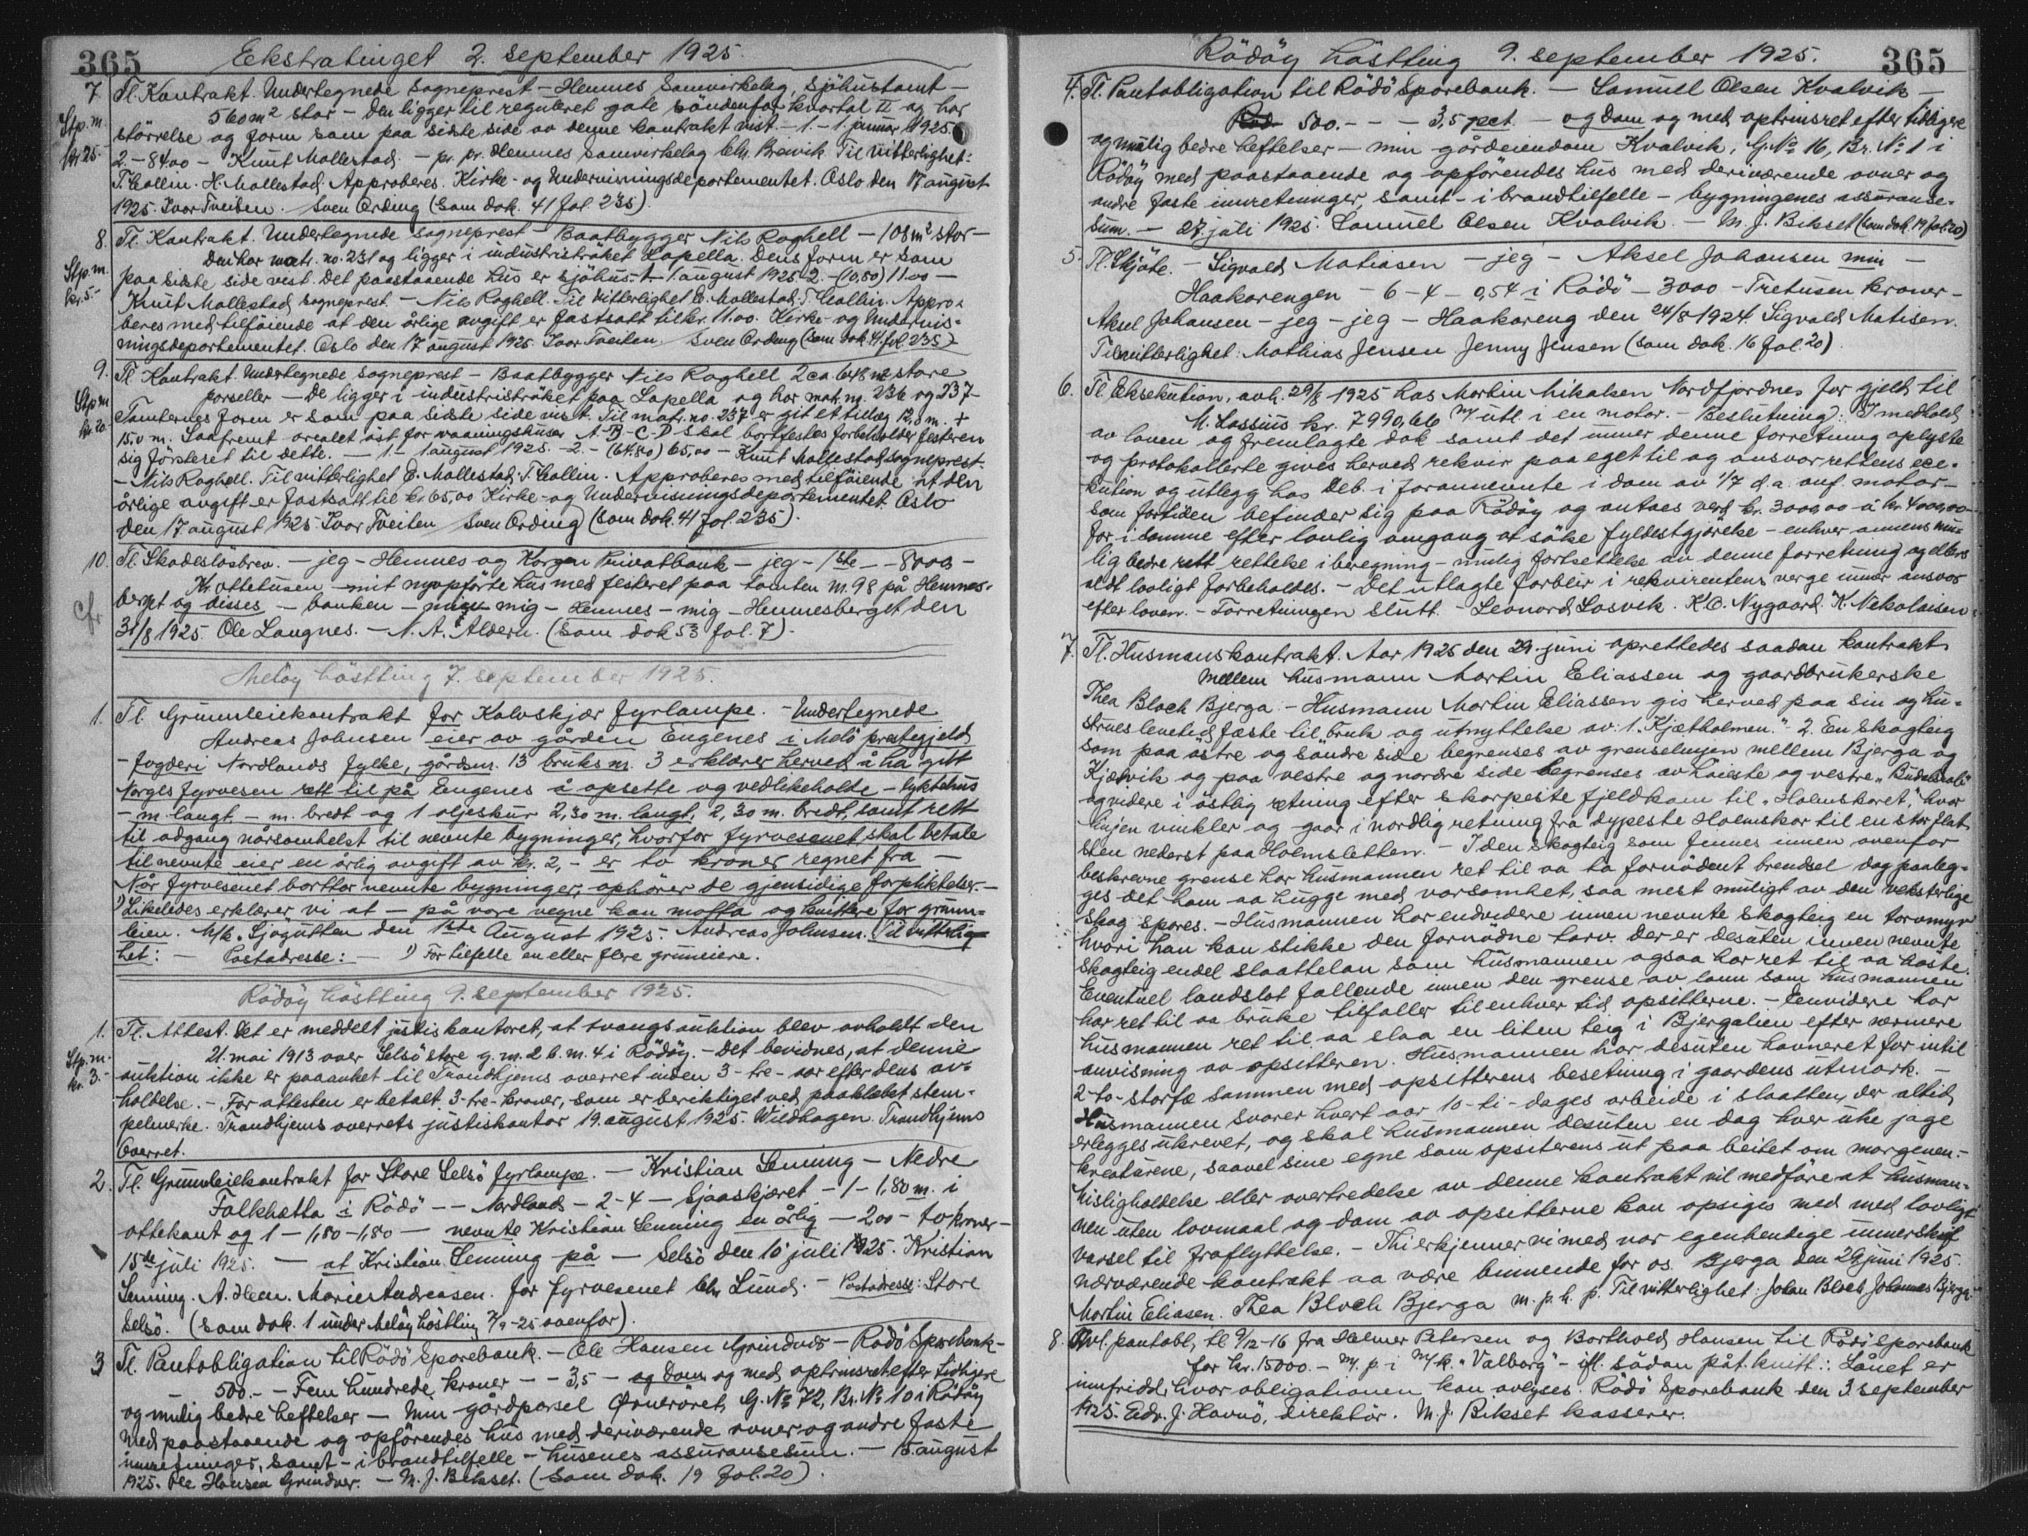 365
Ekstratinget 2. september 1925.
7. Tl. Kontrakt. Undertegnede sogneprest - Hemnes Samvirkelag, Sjöhustomt -
560 m² stor - Den ligger til reguleret gate söndenfor kvartal II og har
Stp. m. kr 25.-
störrelse og form som paa sidste side av denne kontrakt vist. - 1. - 1 januar 1925
2 - 84.00 - Knut Mollestad. - pr. pr. Hemnes samvirkelag Chr. Breivik. Til vitterlighet:
T. Collin. H. Mollestad. Approberes. Kirke- og Undervisningsdepartementet. Oslo den 17 august
1925. Ivar Tveiten. Sven Ording (som dok. 41 fol. 235).
8. Tl. Kontrakt. Undertegnede sogneprest - Baatbygger Nils Roghell - 108 m² stor -
Den har matr. no. 231 og ligger i industriströket Lapella. Dens form er som
Stp. m. kr. 5.-
paa sidste side vist. Det paastaaende hus er sjöhus. 1 - 1 august 1925. 2. - (10,80) 11.00 -
Knut Mollestad sogneprest. - Nils Roghell. Til vitterlighet E. Mollestad, T. Collin. Appro-
beres med tilföiende at den årlige avgift er fastsatt til kr. 11.00. Kirke- og Undervis-
ningsdepartementet. Oslo den 17 august 1925. Ivar Tveiten. Sven Ording (som dok. 41 fol. 235)
9. Tl. Kontrakt. Undertegnede sogneprest - Baatbygger Nils Roghell 2 ca 648 m² store
parseller - De ligger i industriströket paa Lapella og har mat. nr. 236 og 237-
Stp m kr. 20
Tomternes form er som paa sidste side vist. Til matr. no. 237 er git et tillæg 12,0 m. +
15,0 m. Saafremt arealet öst for vaaningshuset A-B-C-D skal bortfestes forbeholder festeren
sig förstret til dette. - 1 - 1 august 1925. - 2. - (64.80) 65,00 - Knut Mollestad sogneprest.
- Nils Roghell. Til vitterlighet E. Mollestad, T. Collin. Approberes med tilföiende at den
årlige avgift er fastsatt til kr. 65,00 Kirke- og Undervisningsdepartementet. Oslo
den 17 august 1925 Ivar Tveiten Sven Ording (som dok. 41 fol. 235).
10. Tl. Skadeslösbrev. - jeg - Hemnes og Korgen Privatbank - jeg - 1ste - - 8000 -
Kr. ottetusen - mit nyopförte hus med festeret paa tomten nr. 98 på Hemnes-
cfr
berget og disses - banken - mig - Hemnes - mig - Hemnesberget den
31/8 1925. Ole Langnes. - N. A. Aldern. (som dok 53 fol. 7).
Meløy höstting 7. september 1925.
1. Tl. Grunnleiekontrakt for Kalvskjær fyrlampe. - Undertegnede
Andreas Johnsen eier av gården Eugenes i Melö prestegjeld
- fogderi Nordlands fylke, gårdsnr. 13 bruksnr. 3 erklærer herved å ha gitt
Norges fyrvesen rett til på Eugenes å opsette og vedlikeholde - lyktehus
- m. langt - m. bredt og 1 oljeskur 2,30 m. langt, 2,30 m. bredt, samt rett
til adgang nårsomhelst til nevnte bygninger, hvorfor fyrvesenet skal betale
til nevnte eier en årlig avgift av kr. 2,- er to kroner regnet fra -
Når fyrvesenet borttar nevnte bygninger, ophörer de gjensidige forpliktelser. -
1) Likeledes erklærer vi at - på vore vegne kan motta og kvittere for grunn-
leien. M/k. Sjögutten den 1ste August 1925. Andreas Johnsen. Til vitterlig-
het: - Postadresse: - 1) For tilfelle en eller flere grunneiere.
Rödöy höstting 9. september 1925.
1. Tl. Attest. Det er meddelt justiskontoret, at tvangsauktion blev avholdt den
21. mai 1913 over Selsö store g. nr. 2 b. nr. 4 i Rödöy. - Det bevidnes, at denne
Stp. m. kr. 3.-
auktion ikke er paaanket til Trondhjems overret inden 3 - tre - aar efter dens av-
holdelse. - For attesten er betalt 3 - tre - kroner, som er berigtiget ved paaklæbet stem-
pelmerke. Trondhjems overrets justiskontor 19. august 1925. Wildhagen Trondhjems
Overret.
2. Tl. Grunnleiekontrakt for Store Selsö fyrlampe. - Kristian Lenning - Nedre
Falkhetta i Rödö - - Nordlands - 2 - 4 - Sjaaskjæret - 1 - 1,80 m. i
ottekant og 1 - 1,80 - 1,80 - nevnte Kristian Lenning en årlig - 2,00 - to kroner -
15de juli 1925. - at Kristian Lenning på - Selsö den 10 juli 1925. Kristian
Lenning. A. Marie Andreasen. for fyrvesenet Chr Lund. - Postadresse: Store
Selsö. (som dok. 1 under Melöy höstting 7/9-25 ovenfor).
3 Tl. Pantobligation til Rödö Sparebank. - Ole Hansen Grindvær - Rödö Sparebank -
- 500.- - Fem hundrede kroner - - 3,5 - og dom og med optrinsret efter tidligere
og mulig bedre heftelser - min gårdparsel Ørneröret, G. No 72, Br. No 10 i Rödöy
med paastaaende og opförendes hus med derværende ovner og andre faste
innretninger, samt - i brandtilfelle - husenes assuransesum. - 15. august
1925. Ole Hansen Grindvær. - M. J. Bikset. (som dok. 19 fol. 20).
Rödöy höstting 9. september 1925. 365
4. Tl. Pantobligation til Rödö Sparebank. - Samuel Olsen Kvalvik -
500.- - - 3,5 pct. - og dom og med optrinsret efter tidligere
og mulig bedre heftelser - min gårdeiendom Kvalvik, G. No 16, Br. No 1 i
Rödöy med paastaaende og opförendes hus med derværende ovner og
andre faste innretninger, samt - i brandtilfelle - bygningenes assuranse-
sum. - 27. juli 1925. Samuel Olsen Kvalvik - M. J. Bikset (som dok. 19 fol. 20)
5. Tl. Skjöte. - Sigvald Matiasen - jeg - Aksel Johansen min -
Haakorengen - 6 - 4 - 0,54 i Rödö - 3000 - Tretusen kroner -
Aksel Johansen - jeg - jeg - Haakoreng den 24/8 1924. Sigvald Matisen.
Til vitterlighet: Mathias Jensen Jenny Jensen (som dok. 16 fol. 20).
6. Tl. Eksekution, avh. 29/8 1925 hos Morten Mikalsen Nordfjordnes for gjeld til
M. Lossius kr. 7990,66 m/ utl. i en motor. - Beslutning: I medhold
av loven og fremlagte dok. samt det under denne forretning oplyste
og protokollerte gives herved rekvir. paa eget til og ansvar rettens exe-
kution og utlegg hos deb. i forannevnte i dom av 1/7 d.a. anf. motor -
som fortiden befinder sig paa Rödöy og antaes verd kr. 3000,00 à kr. 4000,00 -
for i samme efter lovlig omgang at söke fyldestgjörelse - enhver annens mu-
lig bedre rett rettelse i beregning - mulig fortsettelse av denne forretning og ellers
alt lovligt forbeholdes. - Det utlagte forblir i rekvirentens verge under ansvar
efter loven. - Forretningen slutt. - Leonard Losvik. K. O. Nygaard. K. Nikolaisen.
7. Tl. Husmanskontrakt. Aar 1925 den 29. juni oprettedes saadan kontrakt
mellem husmann Morten Eliassen og gaardbrukerske
Thea Bloch Bjerga. - Husmann Morten Eliassen gis herved paa sin og hu-
strus levetid fæste til bruk og utnyttelse av: 1. "Kjetholmen". 2. En skogteig
som paa östre og söndre side begrenses av grenselinjen mellem Bjerga og
Kjælvik og paa vestre og nordre side begrenses av höieste og vestre
og videre i östlig retning efter skarpeste fjeldkam til "Holmskaret", hvor
linjen vinkler og gaar i nordlig retning fra dypeste Holmskar til en stor flat
sten nederst paa Holmsletten. - I den skogteig som finnes innen ovenfor
beskrevne grense har husmannen ret til aa ta fornödent brendsel dog paalæg-
ges det ham aa hugge med varsomhet, saa mest muligt av den veksterlige
skog spares. - Husmannen har endvidere innen nevnte skogteig en torvmyr
hvori han kan stikke den fornödne torv. Der er desuten innen nevnte
skogteig endel slaattelan som husmannen ogsaa har ret til aa höste.
Eventuel landslot fallende innen den grense av lann som husmannen
har ret til aa bruke tilfaller til enhver tid opsitterne. - Envidere har
husmannen ret til aa slaa en liten teig i Bjergalien efter nærmere
anvisning av opsitteren. Husmannen har desuten havneret for intil
2 - to - storfæ sammen med opsitterens besetning i gaardens utmark. -
Husmannen svarer hvert aar 10 - ti - dages arbeide i slaatten, der altid
erlegges ukrevet, og skal husmannen desuten en dag hver uke jage
kreaturene, saavel sine egne som opsiterens ut paa beitet om morgenen. -
Misligholdelse eller overtredelse av denne kontrakt vil medföre at husman-
nen uten lovmaal og dom av opsitterne kan opsiges med med lovligt
varsel til fraflyttelse. - Thi erkjenner vi med vor egenhendige underskrift
nærværende kontrakt aa være binnende for os. Bjerga den 29 juni 1925.
Morten Eliasen. Thea Bloch Bjerga m. p. h. p. Til vitterlighet: Johan Bloch Johannes Bjerga.
8. Avl. pantobl. tl. 9/12-16 fra Helmer Petersen og Borthold Hansen til Rödö Sparebank
for kr. 15000.- m/. p. i M/k. "Valborg" - ifl. sådan påt. kvitt.: Lånet er
innfridd, hvor obligationen kan avlyses. Rödö Sparebank den 3. september
1925. Edv. J. Havnö, direktör. M. J. Bikset kasserer.